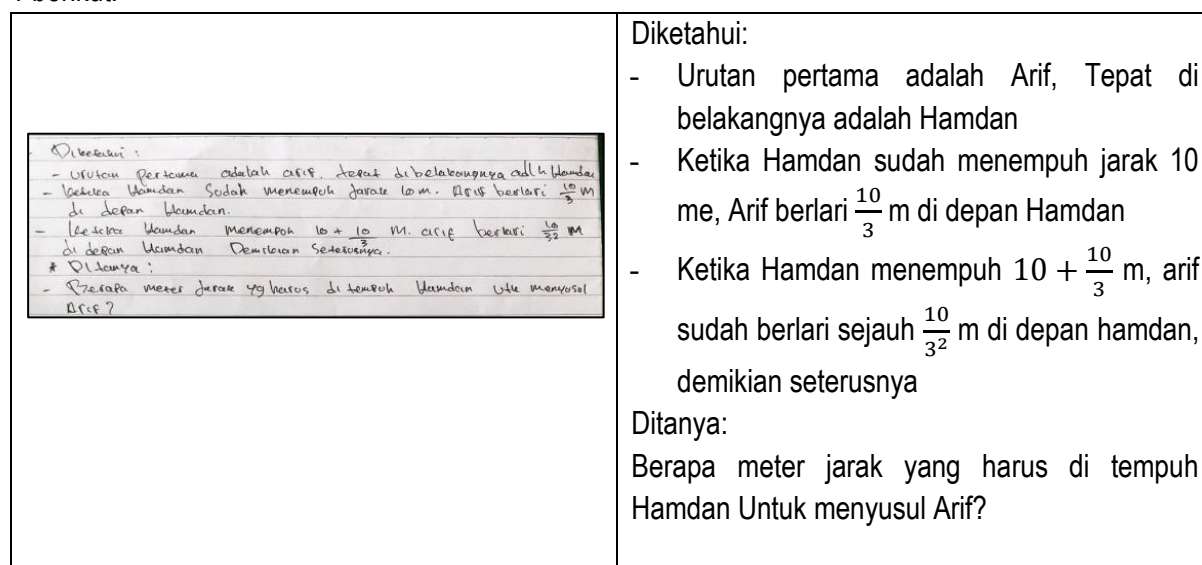 Diketahui :
- Urutan Pertama adalah arif. tepat dibelakangnya adlh Hamdan
- Ketika Hamdan Sudah menempuh Jarak 10 m. Arif berlari 10/3 M
di depan Hamdan.
- Ketika Hamdan menempoh 10 + 10/3 M. arif berlari 10/3² M
di depan Hamdan Demikian Seterusnya.
* Ditanya :
- Berapa meter Jarak yg harus di tempuh Hamdan utk menyusul
Arif?
Diketahui:
- Urutan pertama adalah Arif, Tepat di
belakangnya adalah Hamdan
- Ketika Hamdan sudah menempuh jarak 10
me, Arif berlari 10/3 m di depan Hamdan
- Ketika Hamdan menempuh 10 + 10/3 m, arif
sudah berlari sejauh 10/3² m di depan hamdan,
demikian seterusnya
Ditanya:
Berapa meter jarak yang harus di tempuh
Hamdan Untuk menyusul Arif?